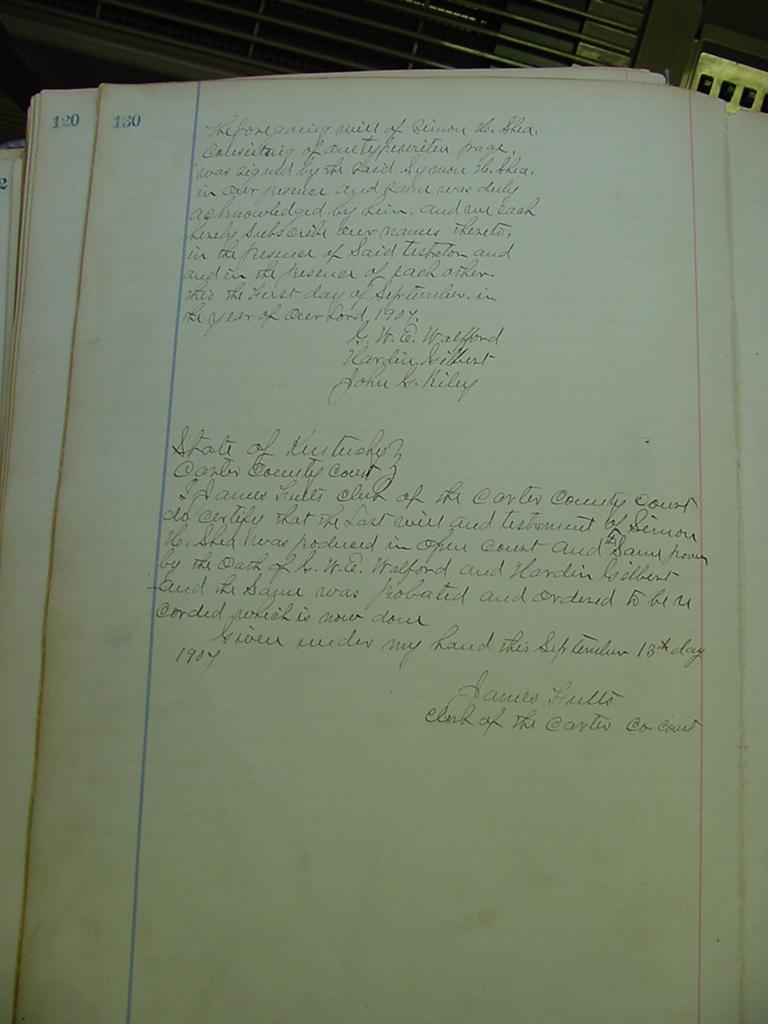 120
130
The foregoing will of Simon H. Shea.
Consisting of one typewriten page,
was signed by the said Symon H. Shea.
in our presence and same was duly
acknowledged by him. and we each
hereby subscribe our names thereto,
in the presence of said testator and
and in the presence of each other
this the first day of September. in
the year of our Lord, 1907.
G. W. E. Wolfford
Hardin Gilbert
John G. Riley
State of Kentucky }
Carter County Court }
I James Fults clerk of the Carter County Court
do certify that the Last will and testament of Simon
H. Shea was produced in open court and the same proven
by the Oath of G. W. E. Wolford and Hardin Gilbert
and the same was probated and ordered to be re
corded which is now done
Given under my hand this September 13th day
1907
James Fults
clerk of the Carter Co. court